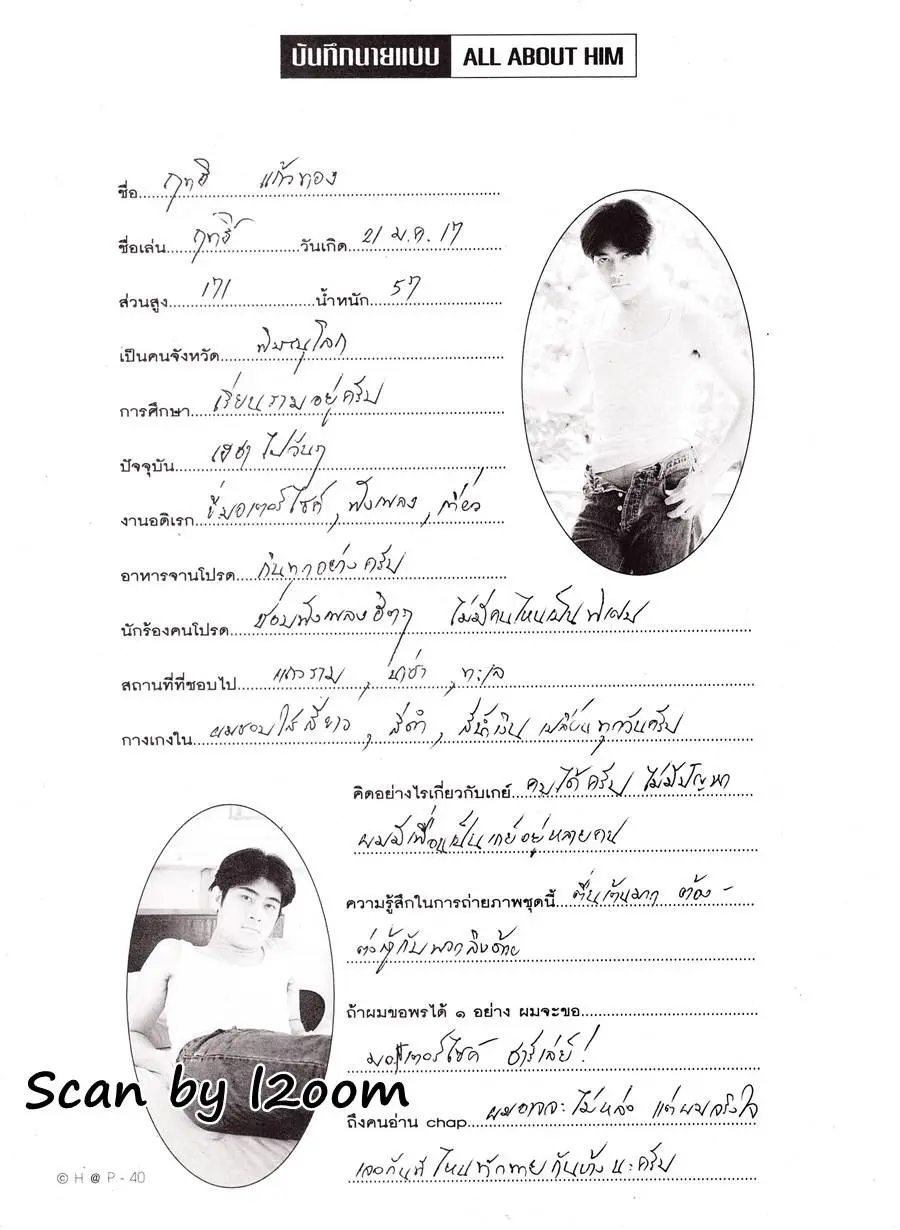 บันทึกนายแบบ ALL ABOUT HIM
ชื่อ ฤทธิ์ แก้วทอง
ชื่อเล่น ฤทธิ์ วันเกิด 21 ม.ค. 17
ส่วนสูง 171 น้ำหนัก 57
เป็นคนจังหวัด พิษณุโลก
การศึกษา เรียนรามอยู่ครับ
ปัจจุบัน เฮฮาไปวันๆ
งานอดิเรก ขี่มอเตอร์ไซค์, ฟังเพลง, เที่ยว
อาหารจานโปรด กินทุกอย่างครับ
นักร้องคนโปรด ชอบฟังเพลงฮิตๆ ไม่มีคนไหนเป็น
สถานที่ที่ชอบไป แถวราม, นาซ่า, ทะเล
กางเกงใน ผมชอบใส่สีขาว, สีดำ, สีน้ำเงิน เปลี่ยนทุกวันครับ
คิดอย่างไรเกี่ยวกับเกย์ คบได้ครับ ไม่มีปัญหา
ผมมีเพื่อนเป็นเกย์อยู่หลายคน
ความรู้สึกในการถ่ายภาพชุดนี้ ตื่นเต้นมาก ต้อง
ต่อสู้กับพวก
ถ้าผมขอพรได้ ๑ อย่าง ผมจะขอ
มอเตอร์ไซค์ ฮาร์เล่ย์!
ถึงคนอ่าน chap ผมอาจจะไม่หล่อ แต่ผมจริงใจ
เจอกันที่ไหนทักทายกันบ้างนะครับ
Scan by l2oom
© H @ P - 40